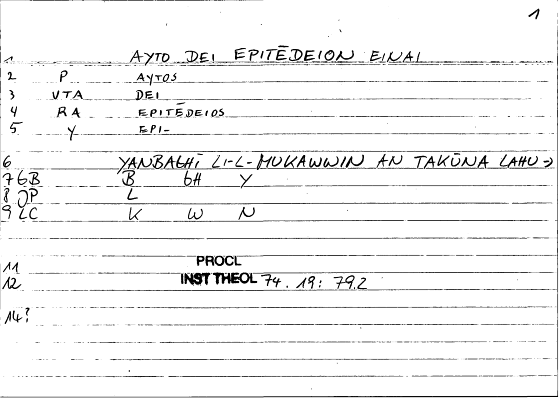 1
1 AYTO DEI EPITĒDEION EINAI
2 P AYTOS
3 VTA DEI
4 RA EPITĒDEIOS
5 Y EPI-
6 YANBAGHĪ LI-L-MUKAWWIN AN TAKŪNA LAHU →
7 GB B GH Y
8 JP L
9 LC K W N
11 PROCL
12 INST THEOL 74.19: 79.2
14?